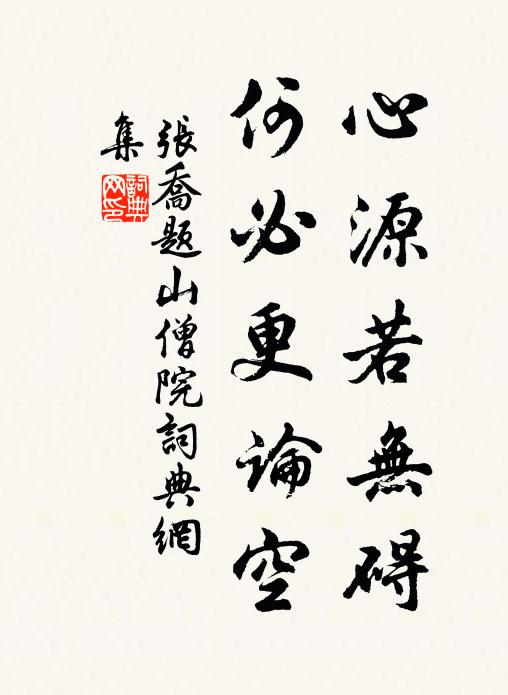 心源若無碍
何必更論空
張喬題山僧院詞典網
集
詞典
网印